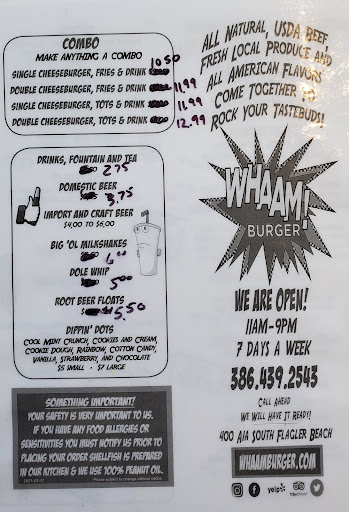 COMBO
MAKE ANYTHING A COMBO
10.50
SINGLE CHEESEBURGER, FRIES & DRINK
DOUBLE CHEESEBURGER, FRIES & DRINK 11.99
SINGLE CHEESEBURGER, TOTS & DRINK 11.99
DOUBLE CHEESEBURGER, TOTS & DRINK 12.99
DRINKS, FOUNTAIN AND TEA
2.75
DOMESTIC BEER
3.75
IMPORT AND CRAFT BEER
$4.00 TO $6.00
BIG 'OL MILKSHAKES
6.00
DOLE WHIP
5.00
ROOT BEER FLOATS
5.50
DIPPIN' DOTS
COOL MINT CRUNCH, COOKIES AND CREAM,
COOKIE DOUGH, RAINBOW, COTTON CANDY,
VANILLA, STRAWBERRY, AND CHOCOLATE
$5 SMALL • $7 LARGE
SOMETHING IMPORTANT!
YOUR SAFETY IS VERY IMPORTANT TO US.
IF YOU HAVE ANY FOOD ALLERGIES OR
SENSITIVITIES YOU MUST NOTIFY US PRIOR TO
PLACING YOUR ORDER SHELLFISH IS PREPARED
IN OUR KITCHEN & WE USE 100% PEANUT OIL.
Prices subject to change without notice.
ALL NATURAL, USDA BEEF,
FRESH LOCAL PRODUCE AND
ALL AMERICAN FLAVORS
COME TOGETHER TO
ROCK YOUR TASTEBUDS!
WHAAM!
BURGER
WE ARE OPEN!
11AM-9PM
7 DAYS A WEEK
386.439.2543
CALL AHEAD
WE WILL HAVE IT READY!
400 A1A SOUTH FLAGLER BEACH
WHAAMBURGER.COM
yelp
tripadvisor